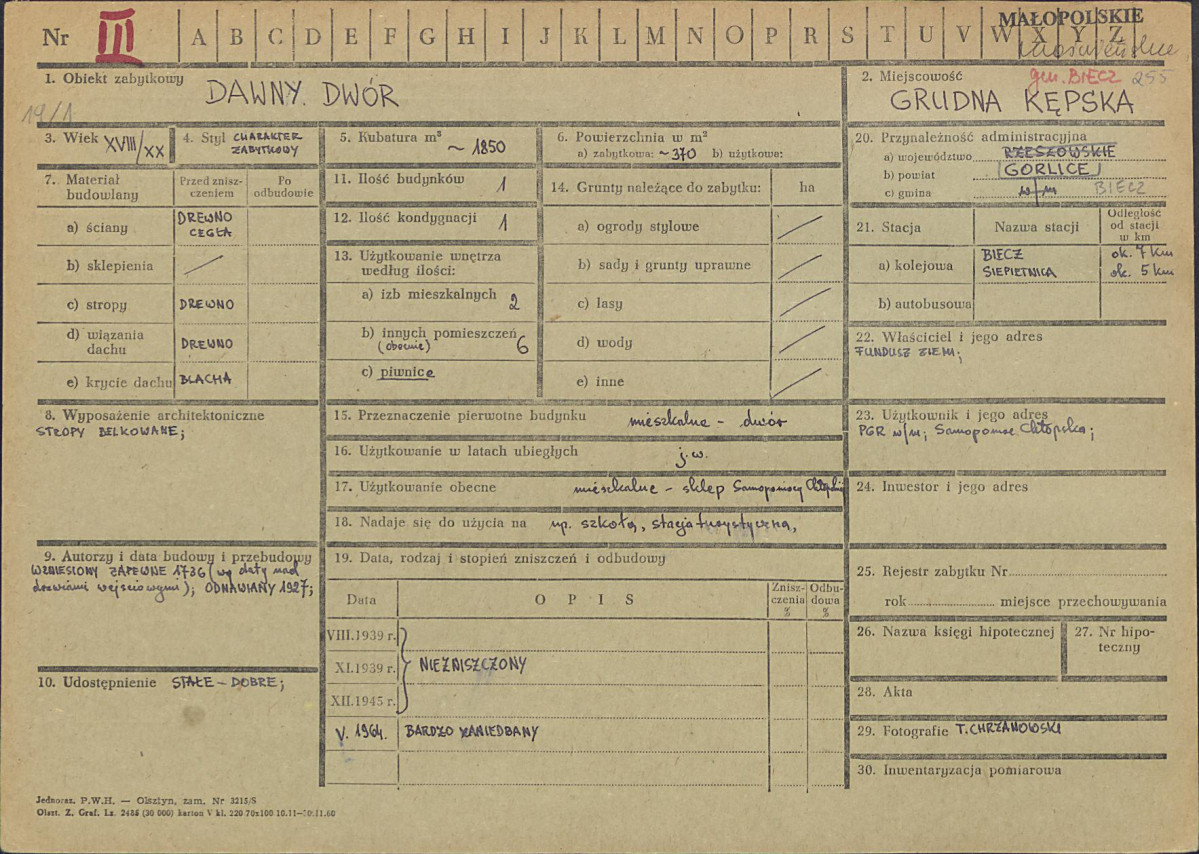 MAŁOPOLSKIE
Nr III A B C D E F G H I J K L M N O P R S T U V W X Y Z
1. Obiekt zabytkowy
DAWNY DWÓR
19/1
2. Miejscowość
gm. BIECZ 255
GRUDNA KĘPSKA
3. Wiek XVIII/XX
4. Styl CHARAKTER
ZABYTKOWY
5. Kubatura m³
~ 1850
6. Powierzchnia w m²
a) zabytkowa: ~370 b) użytkowa:
20. Przynależność administracyjna
a) województwo RZESZOWSKIE
b) powiat GORLICE
c) gmina w/m BIECZ
7. Materiał
budowlany
Przed znisz-
czeniem
Po
odbudowie
a) ściany DREWNO
CEGŁA
b) sklepienia
c) stropy DREWNO
d) wiązania
dachu DREWNO
e) krycie dachu BLACHA
11. Ilość budynków 1
12. Ilość kondygnacji 1
13. Użytkowanie wnętrza
według ilości:
a) izb mieszkalnych 2
b) innych pomieszczeń 6
(obecnie)
c) piwnice
14. Grunty należące do zabytku: ha
a) ogrody stylowe
b) sady i grunty uprawne
c) lasy
d) wody
e) inne
21. Stacja Nazwa stacji
Odległość
od stacji
w km
a) kolejowa
BIECZ ok. 7 km
SIEPIETNICA ok. 5 km
b) autobusowa
22. Właściciel i jego adres
FUNDUSZ ZIEMI;
8. Wyposażenie architektoniczne
STROPY BELKOWANE;
15. Przeznaczenie pierwotne budynku mieszkalne - dwór
16. Użytkowanie w latach ubiegłych j.w.
17. Użytkowanie obecne mieszkalne - sklep Samopomocy Chłopskiej
18. Nadaje się do użycia na np. szkołę, stacja turystyczna,
23. Użytkownik i jego adres
PGR w/m; Samopomoc Chłopska;
24. Inwestor i jego adres
9. Autorzy i data budowy i przebudowy
WZNIESIONY ZAPEWNE 1736 (wg daty nad
drzwiami wejściowymi); ODNAWIANY 1927;
10. Udostępnienie STAŁE - DOBRE;
19. Data, rodzaj i stopień zniszczeń i odbudowy
Data OPIS
Znisz-
czenia
%
Odbu-
dowa
%
VIII.1939 r.
XI.1939 r. NIEZNISZCZONY
XII.1945 r.
V. 1964. BARDZO ZANIEDBANY
25. Rejestr zabytku Nr
rok miejsce przechowywania
26. Nazwa księgi hipotecznej
27. Nr hipo-
teczny
28. Akta
29. Fotografie T. CHRZANOWSKI
30. Inwentaryzacja pomiarowa
Jednoraz. P.W.H. — Olsztyn, zam. Nr 3215/S
Olszt. Z. Graf. Lz. 2485 (30 000) karton V kl. 220 70x100 10.11—10.11.60